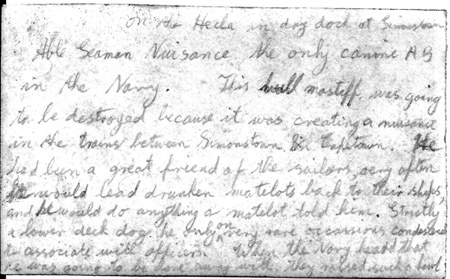 On the Hecla in dry dock at Simonstown
Able Seaman Nuisance the only canine AB
in the Navy. This bull mastiff was going
to be destroyed because it was creating a nuisance
in the trains between Simonstown & Capetown. He
had been a great friend of the sailors, very often
He would lead drunken matelots back to their ships,
and he would do anything a matelot told him. Strictly
a lower deck dog, he only on very rare occassions condescended
to associate with officers. When the Navy heard that
he was going to be done away with they raised such a howl